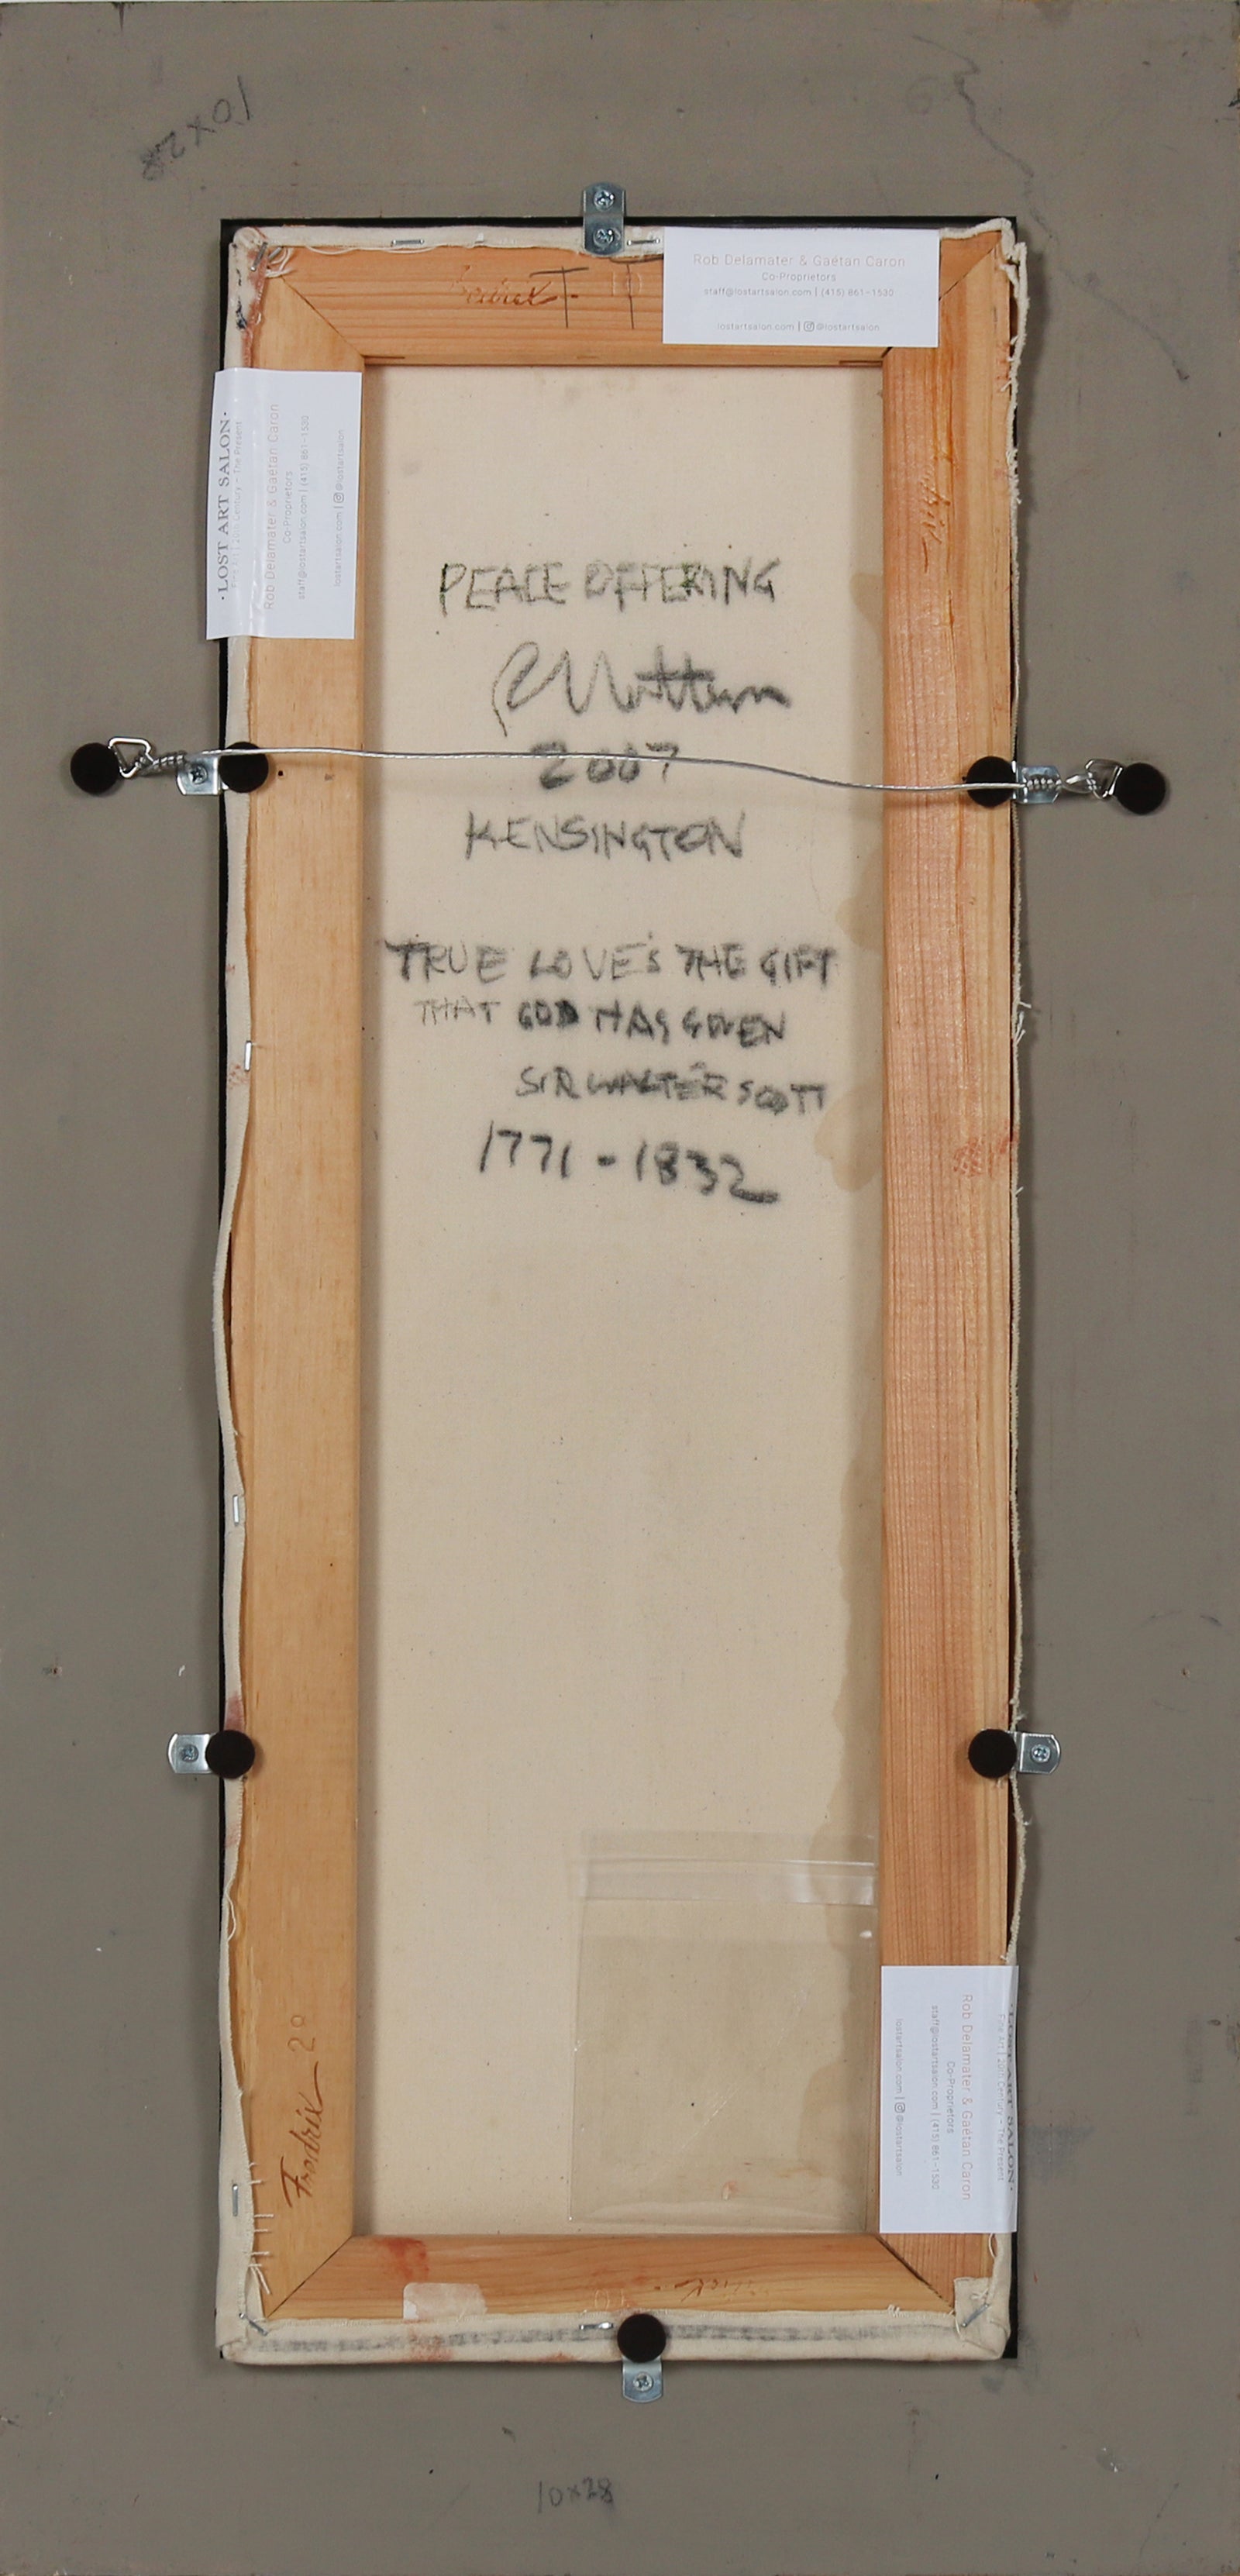 10x28
Rob Delamater & Gaétan Caron
Co-Proprietors
staff@lostartsalon.com | (415) 861-1530
lostartsalon.com | @lostartsalon
·LOST ART SALON·
Fine Art | 20th Century - The Present
Rob Delamater & Gaétan Caron
Co-Proprietors
staff@lostartsalon.com | (415) 861-1530
lostartsalon.com | @lostartsalon
PEACE OFFERING
2007
KENSINGTON
TRUE LOVE'S THE GIFT
THAT GOD HAS GIVEN
SIR WALTER SCOTT
1771 - 1832
Fredrix 28
·LOST ART SALON·
Fine Art | 20th Century - The Present
Rob Delamater & Gaétan Caron
Co-Proprietors
staff@lostartsalon.com | (415) 861-1530
lostartsalon.com | @lostartsalon
10x28